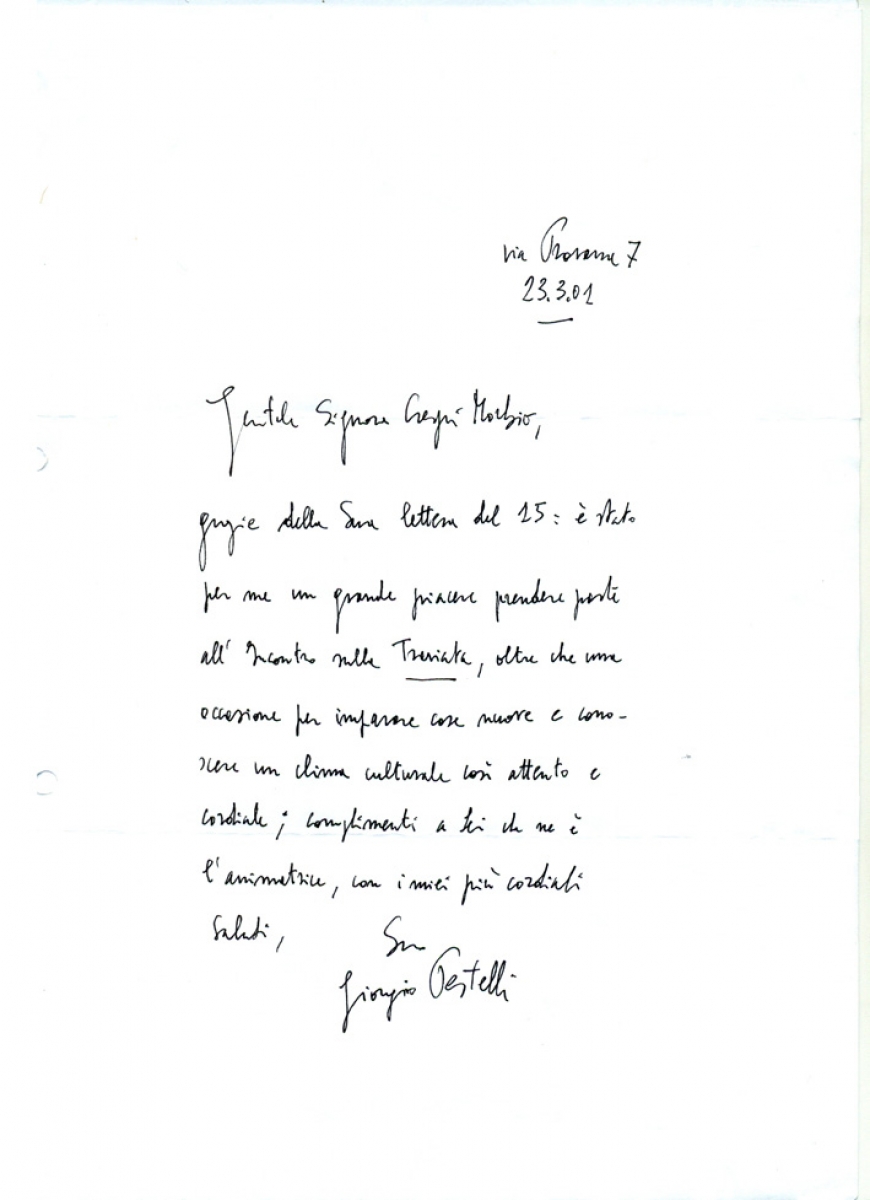 via 7
23.3.01
Gentile Signora Crespi Morbio,
grazie della Sua lettera del 15: è stato
per me un grande piacere prendere parte
all' Incontro sulla Traviata, oltre che una
occasione per imparare cose nuove e cono-
scere un clima culturale così attento e
cordiale; complimenti a Lei che ne è
l'animatrice, con i miei più cordiali
saluti,
Suo
Giorgio Pestelli